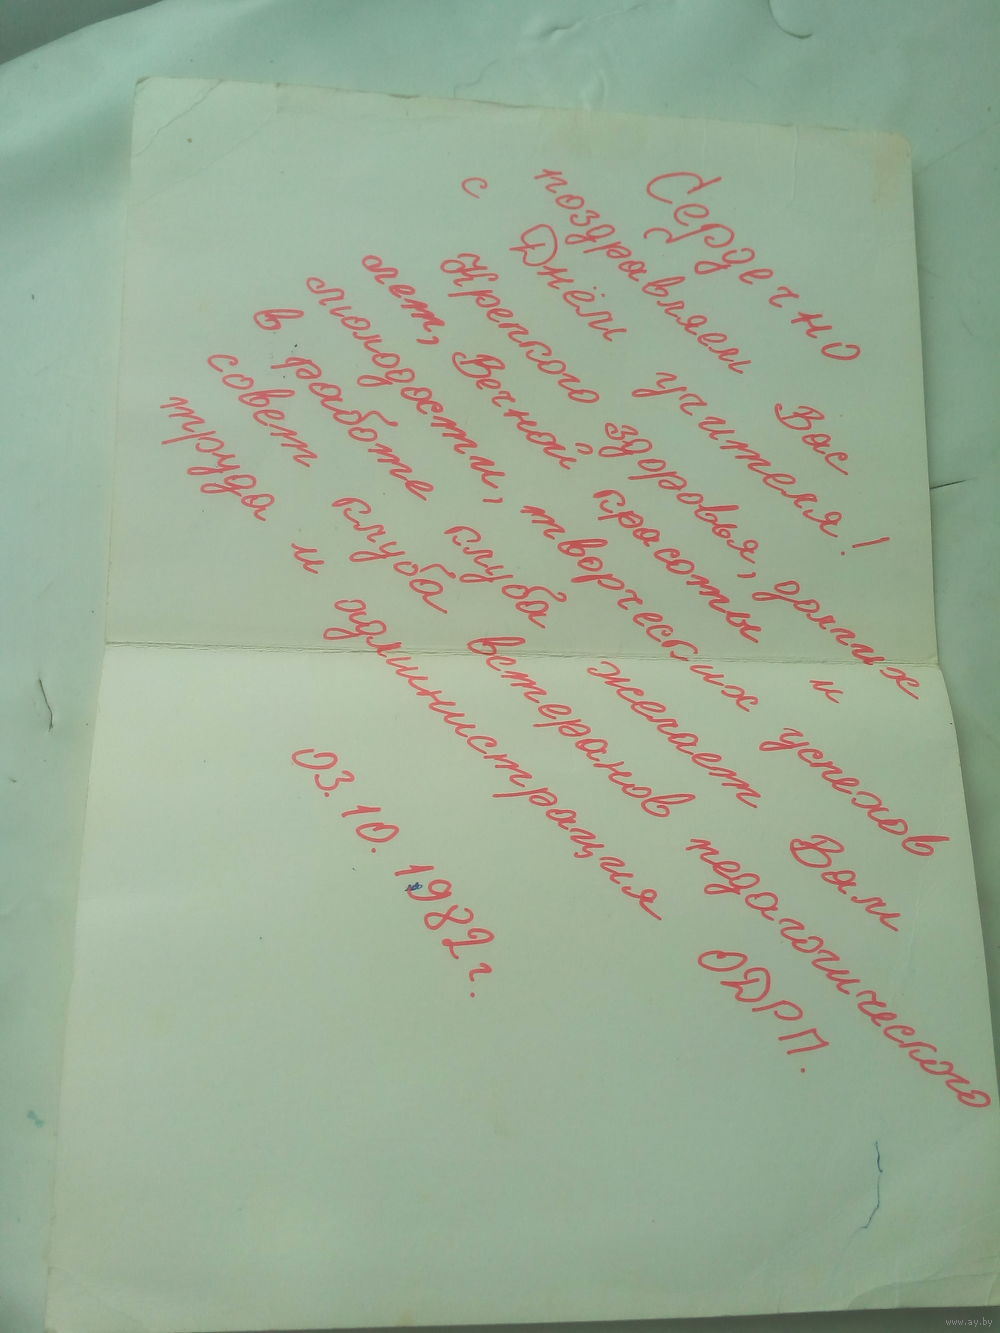 Сердечно
поздравляем Вас
с Днём учителя!
Крепкого здоровья, долгих
лет, Вечной красоты и
молодости, творческих успехов
в работе клуба желает Вам
совет клуба ветеранов педагогического
труда и администрация ОДРП.
03.10.1982г.
www.ay.by